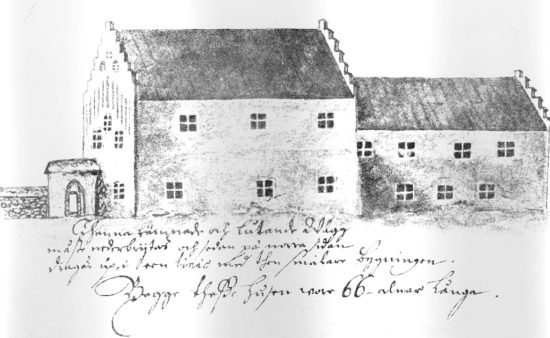 Thenna remnade och lutande Wägg
måste nederbrytas och sedan på norra sidan
dragas up i een linie med then smalare bygningen.
Begge thesse Husen wore 66 alnar Långa.